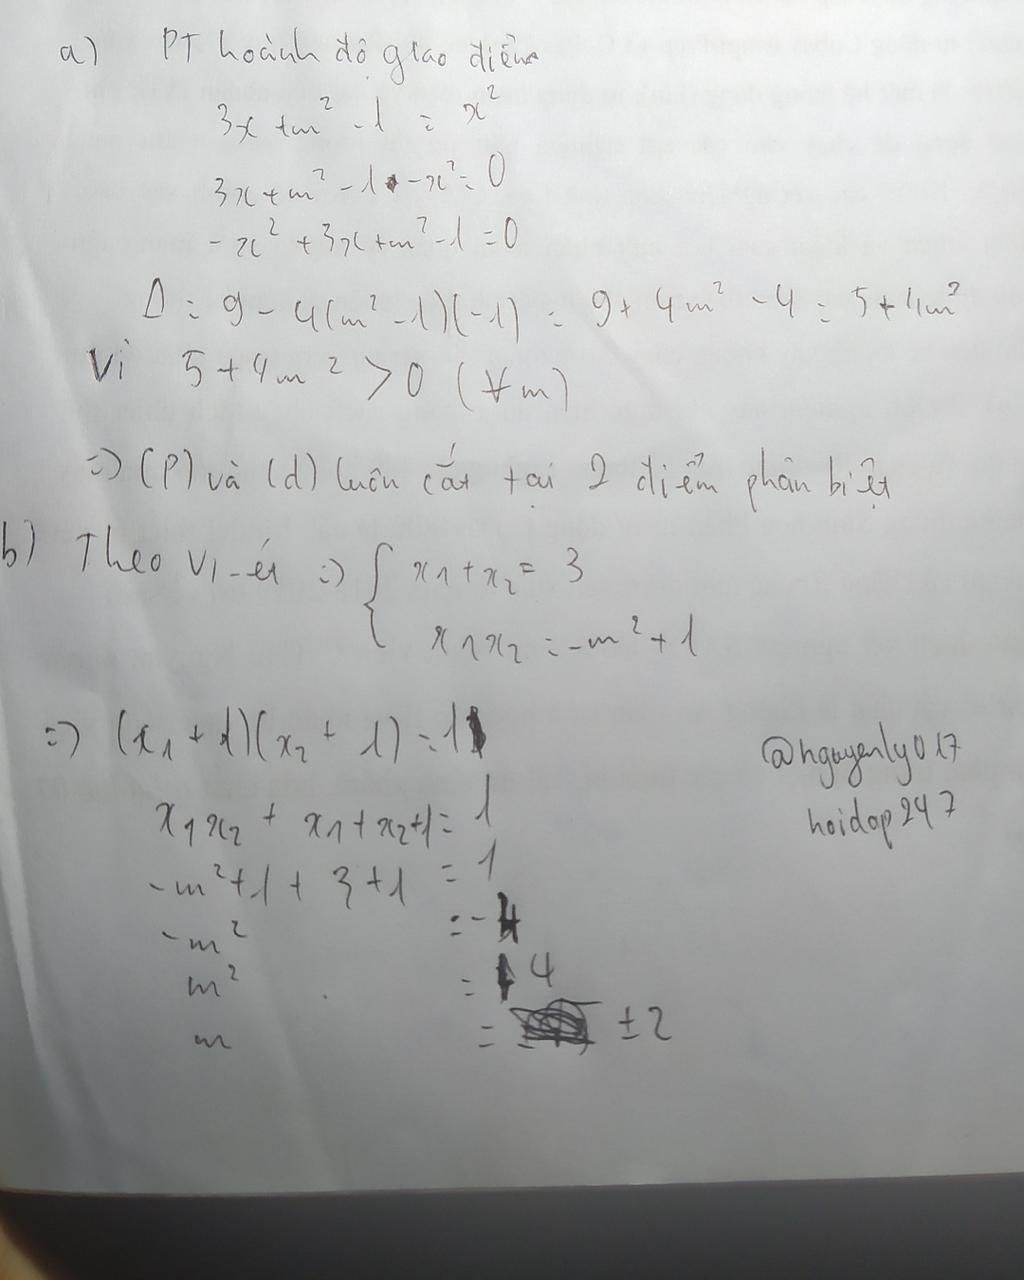 a) PT hoành độ giao điểm
3x + m² - 1 = x²
3x + m² - 1 - x² = 0
- x² + 3x + m² - 1 = 0
Δ = 9 - 4(m² - 1)(-1) = 9 + 4m² - 4 = 5 + 4m²
Vì 5 + 4m² > 0 (∀m)
=> (P) và (d) luôn cắt tại 2 điểm phân biệt
b) Theo Vi-ét => { x1 + x2 = 3
x1x2 = -m² + 1
=> (x1 + 1)(x2 + 1) = 1
x1x2 + x1 + x2 + 1 = 1
-m² + 1 + 3 + 1 = 1
-m² = -4
m² = 4
m = ±2
@nguyenly017
hoidap247